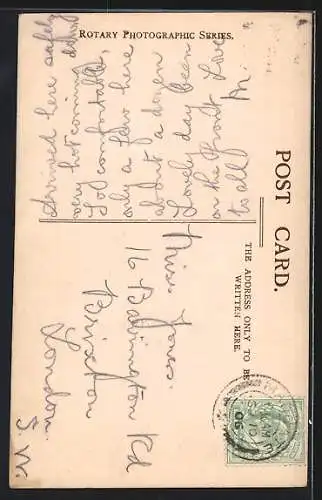 ROTARY PHOTOGRAPHIC SERIES.
POST CARD.
THE ADDRESS ONLY TO BE
WRITTEN HERE.
Arrived here safely
very hot coming down
Top comfortable,
only a few here
about a dozen
Lovely day been
on the front Love
to all M.
Miss Jones.
16 Babington Rd
Brixton
London.
S. W.
06